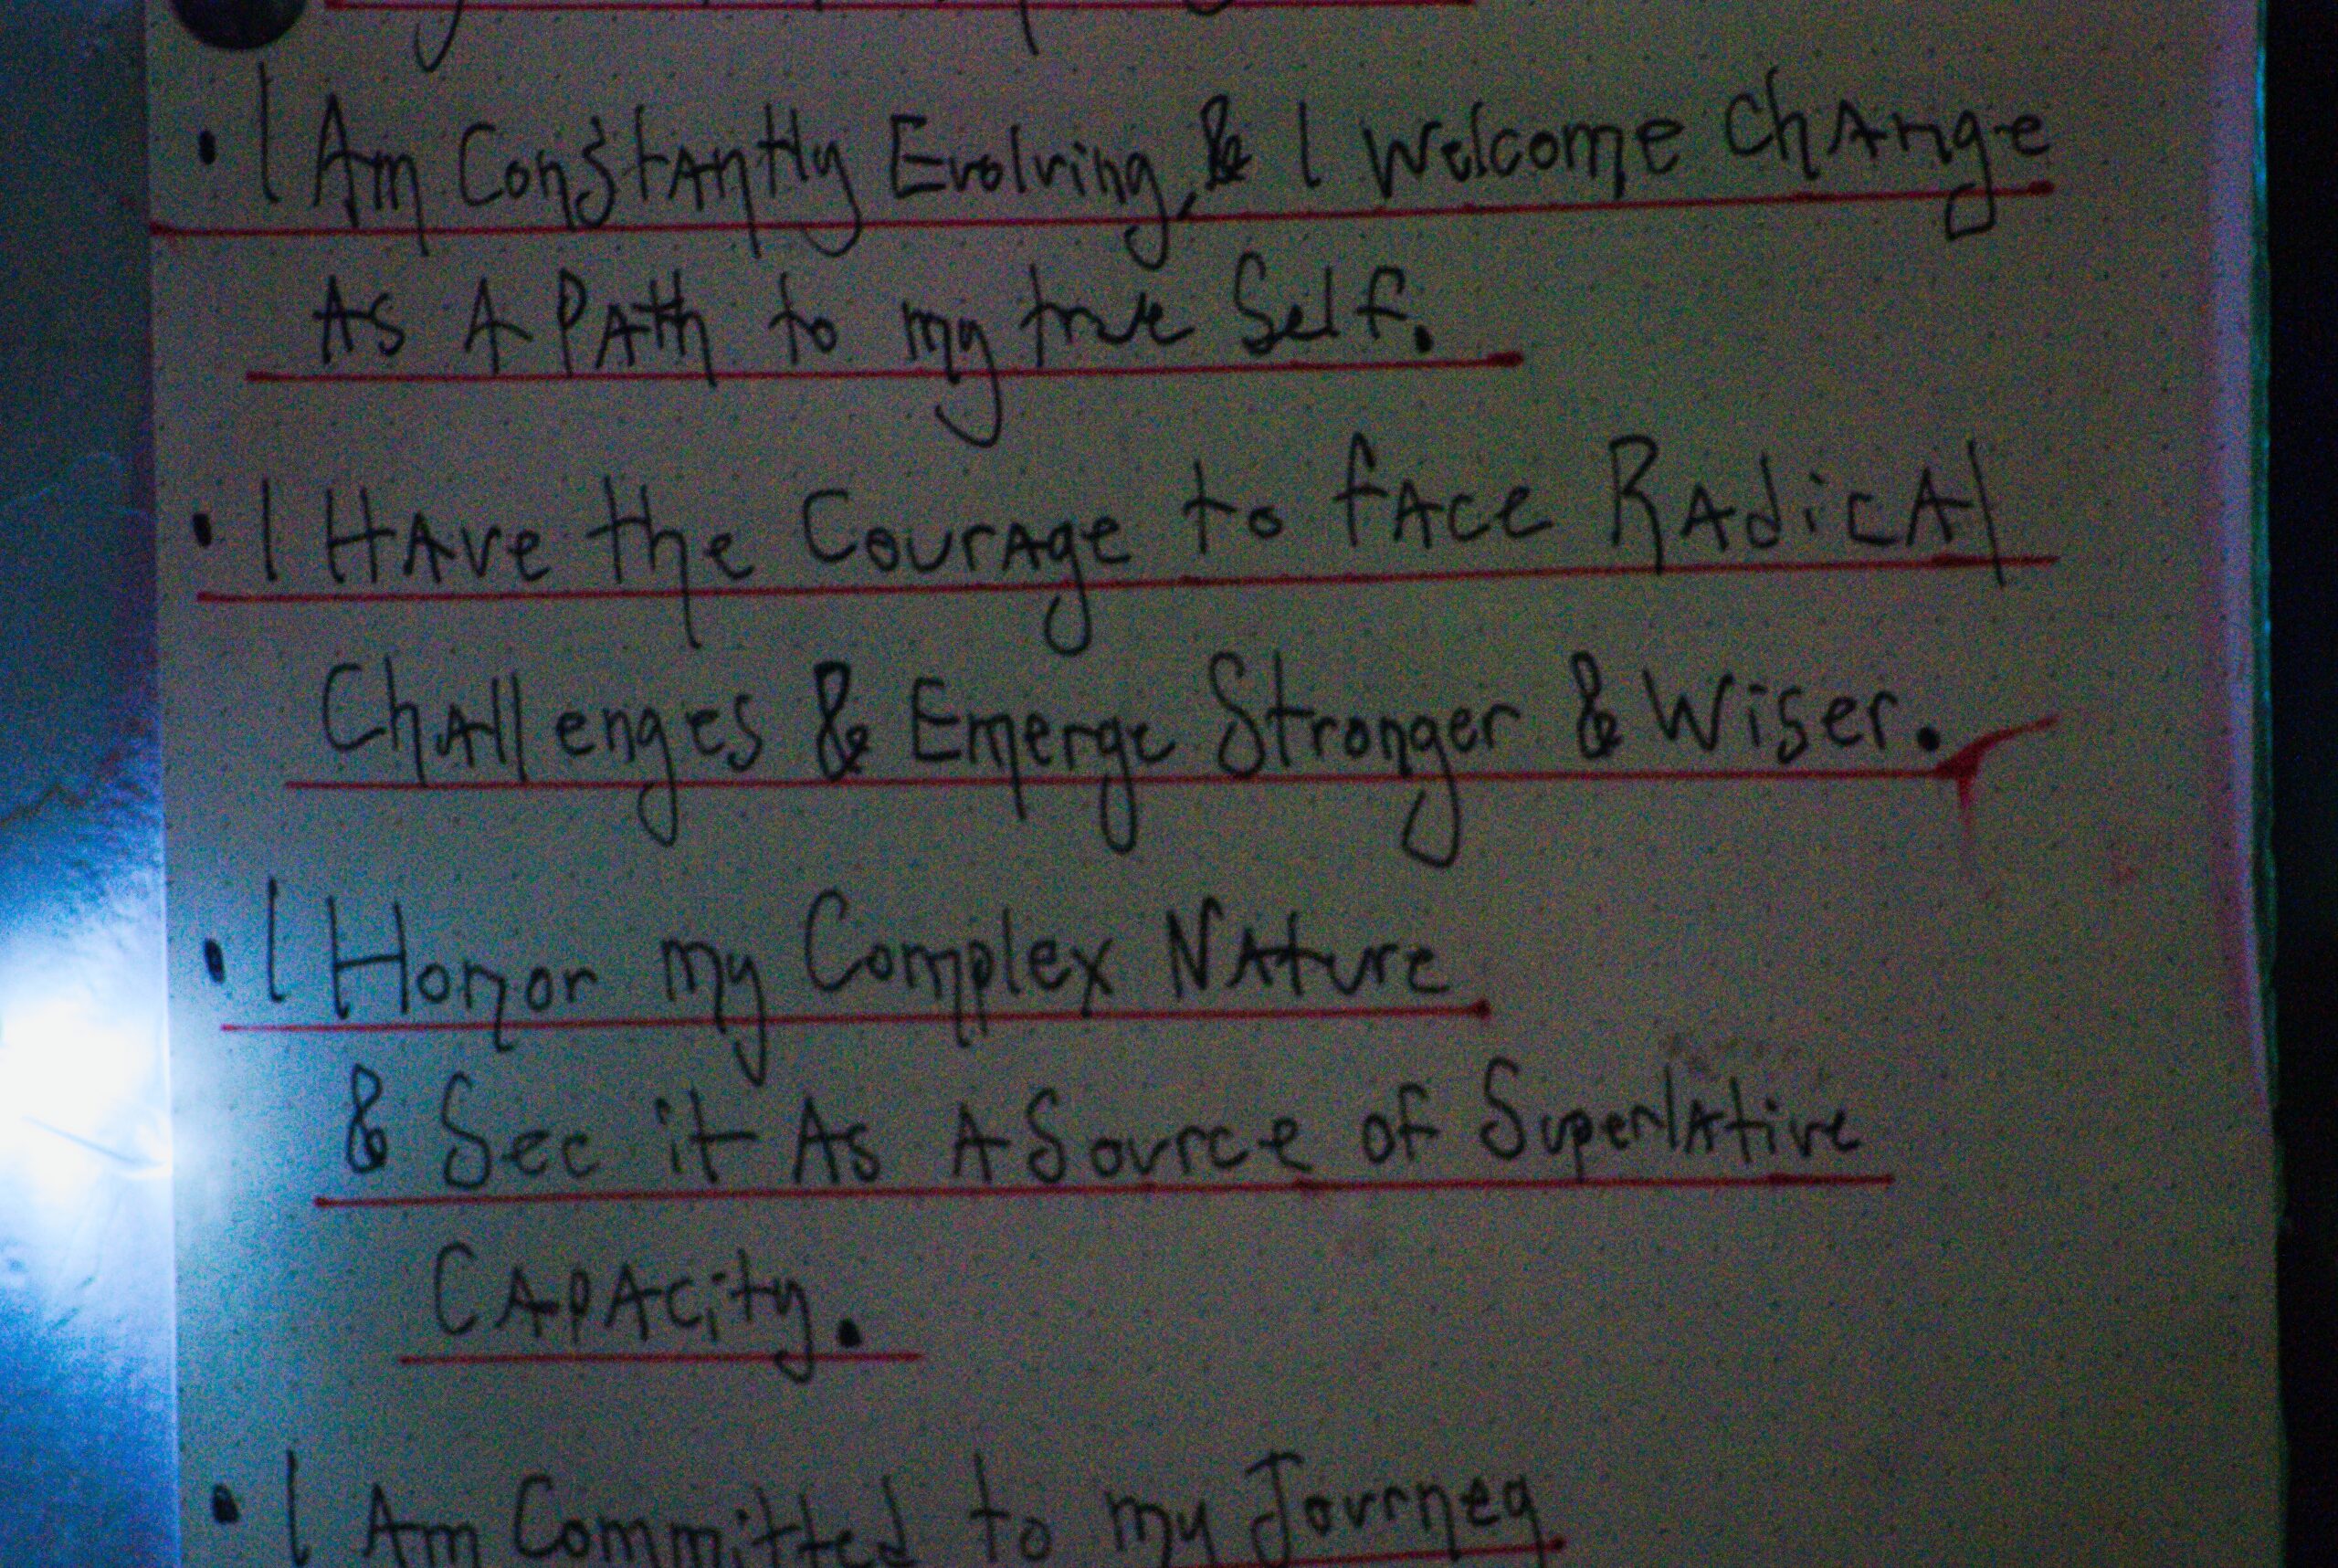 • I Am Constantly Evolving, & I Welcome Change
As A Path to my true Self.
• I Have the Courage to face Radical
Challenges & Emerge Stronger & Wiser.
• I Honor my Complex Nature
& See it As A Source of Superlative
Capacity.
• I Am Committed to my Journey